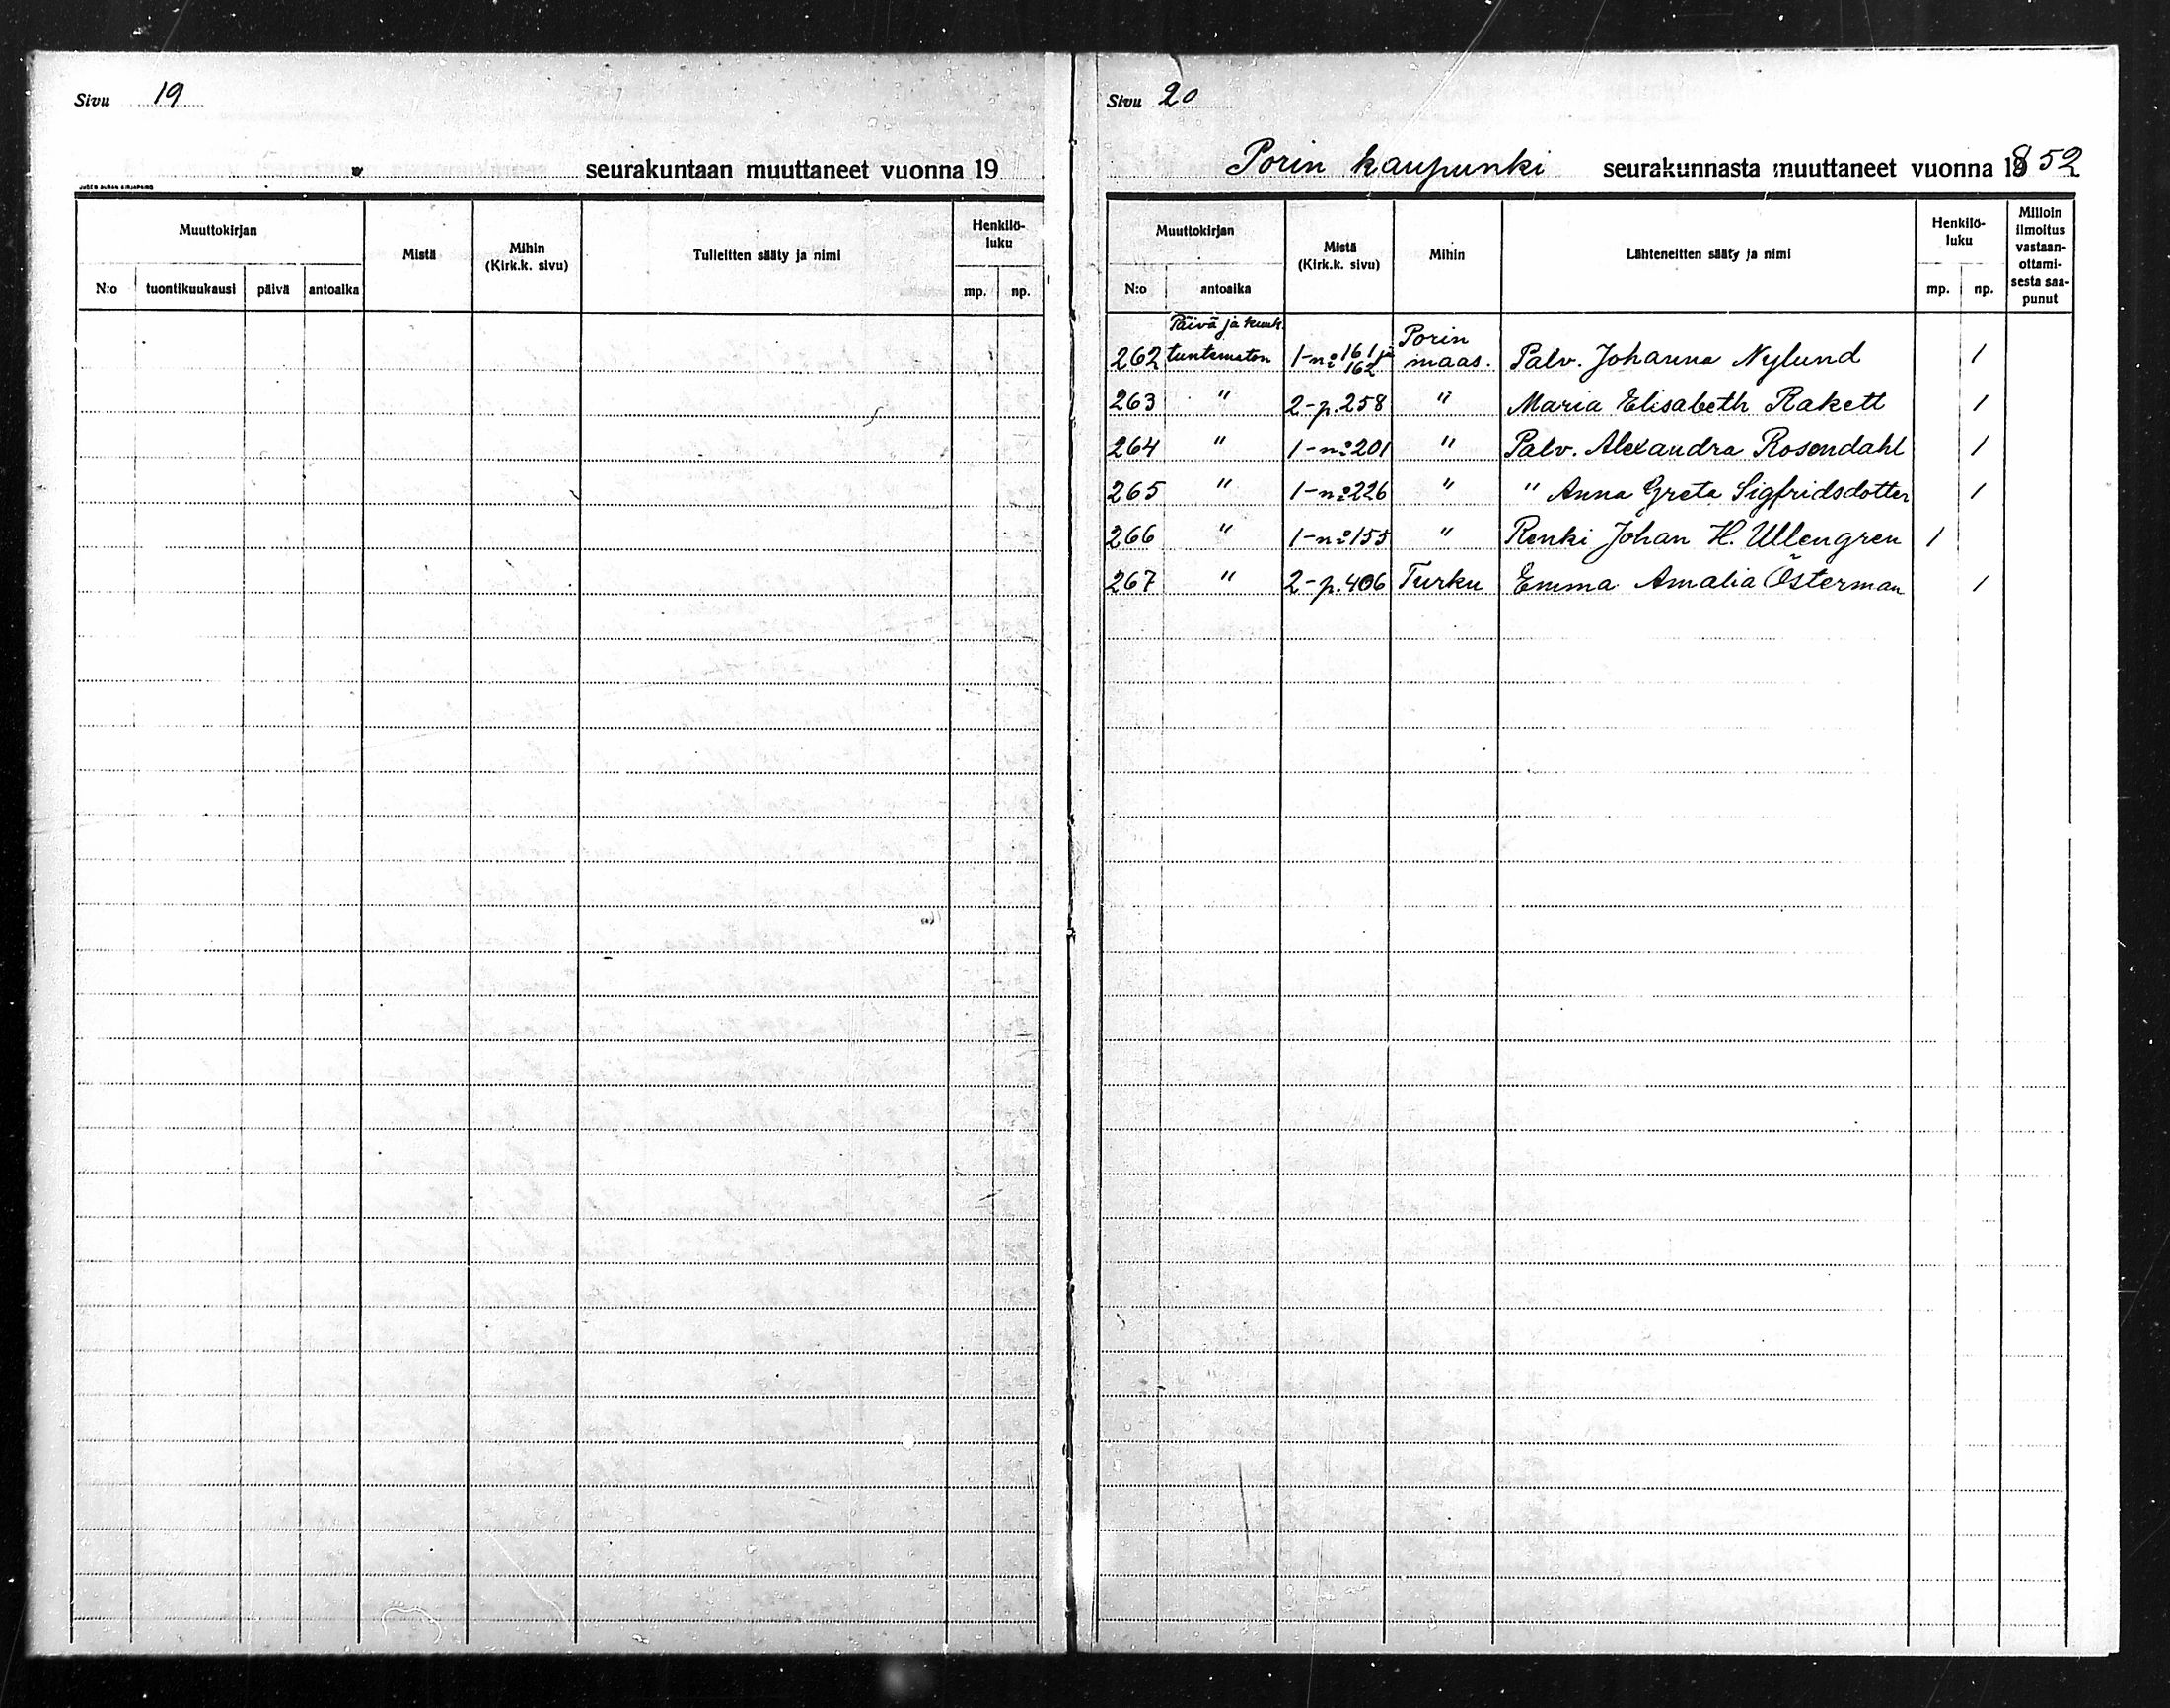 Sivu 19
seurakuntaan muuttaneet vuonna 19
Muuttokirjan
Mistä
Mihin
(Kirk.k. sivu)
Tulleitten sääty ja nimi
Henkilö-
luku
N:o tuontikuukausi päivä antoaika
mp. np.
Sivu 20
Porin kaupunki seurakunnasta muuttaneet vuonna 1852
Muuttokirjan
Mistä
(Kirk.k. sivu)
Mihin
Lähteneitten sääty ja nimi
Henkilö-
luku
Milloin
ilmoitus
vastaan-
ottami-
sesta saa-
punut
N:o antoaika
mp. np.
Päivä ja kuuk. Porin
262 tuntematon 1-no 161 ja 162 maas. Palv. Johanna Nylund 1
263 " 2-p.258 " Maria Elisabeth Rakett 1
264 " 1-no 201 " Palv. Alexandra Rosendahl 1
265 " 1-no 226 " " Anna Greta Sigfridsdotter 1
266 " 1-no 155 " Renki Johan H. Ullengren 1
267 " 2-p.406 Turku Emma Amalia Österman 1